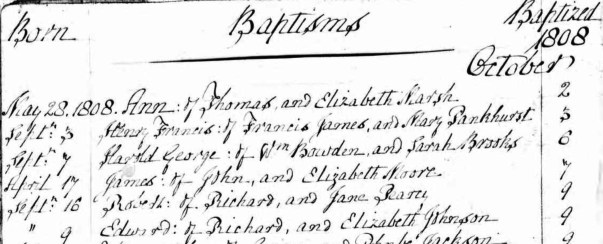 Born Baptisms Baptized
1808
October
May 28. 1808. Ann: of Thomas, and Elizabeth Marsh 2
Septr. 3 Henry Francis: of Francis James, and Mary Pankhurst 3
Septr. 7 Harold George: of Wm Bowden, and Sarah Brooks 6
April 17 James: of John, and Elizabeth Moore 7
Septr. 16 Robert: of Richard, and Jane Pearcy 9
" 9 Edward: of Richard, and Elizabeth Johnson 9
Jackson 9